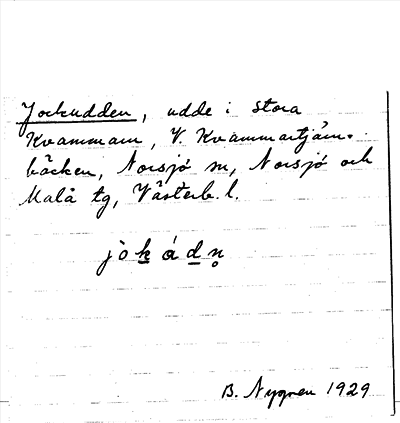 Jockudden, udde i Stora
Kvammarn, V. Kvammartjärn-
bäcken, Norsjö sn, Norsjö och
Malå tg, Västerb. l.
jòk̲ ád̲n̥
B. Nygren 1929